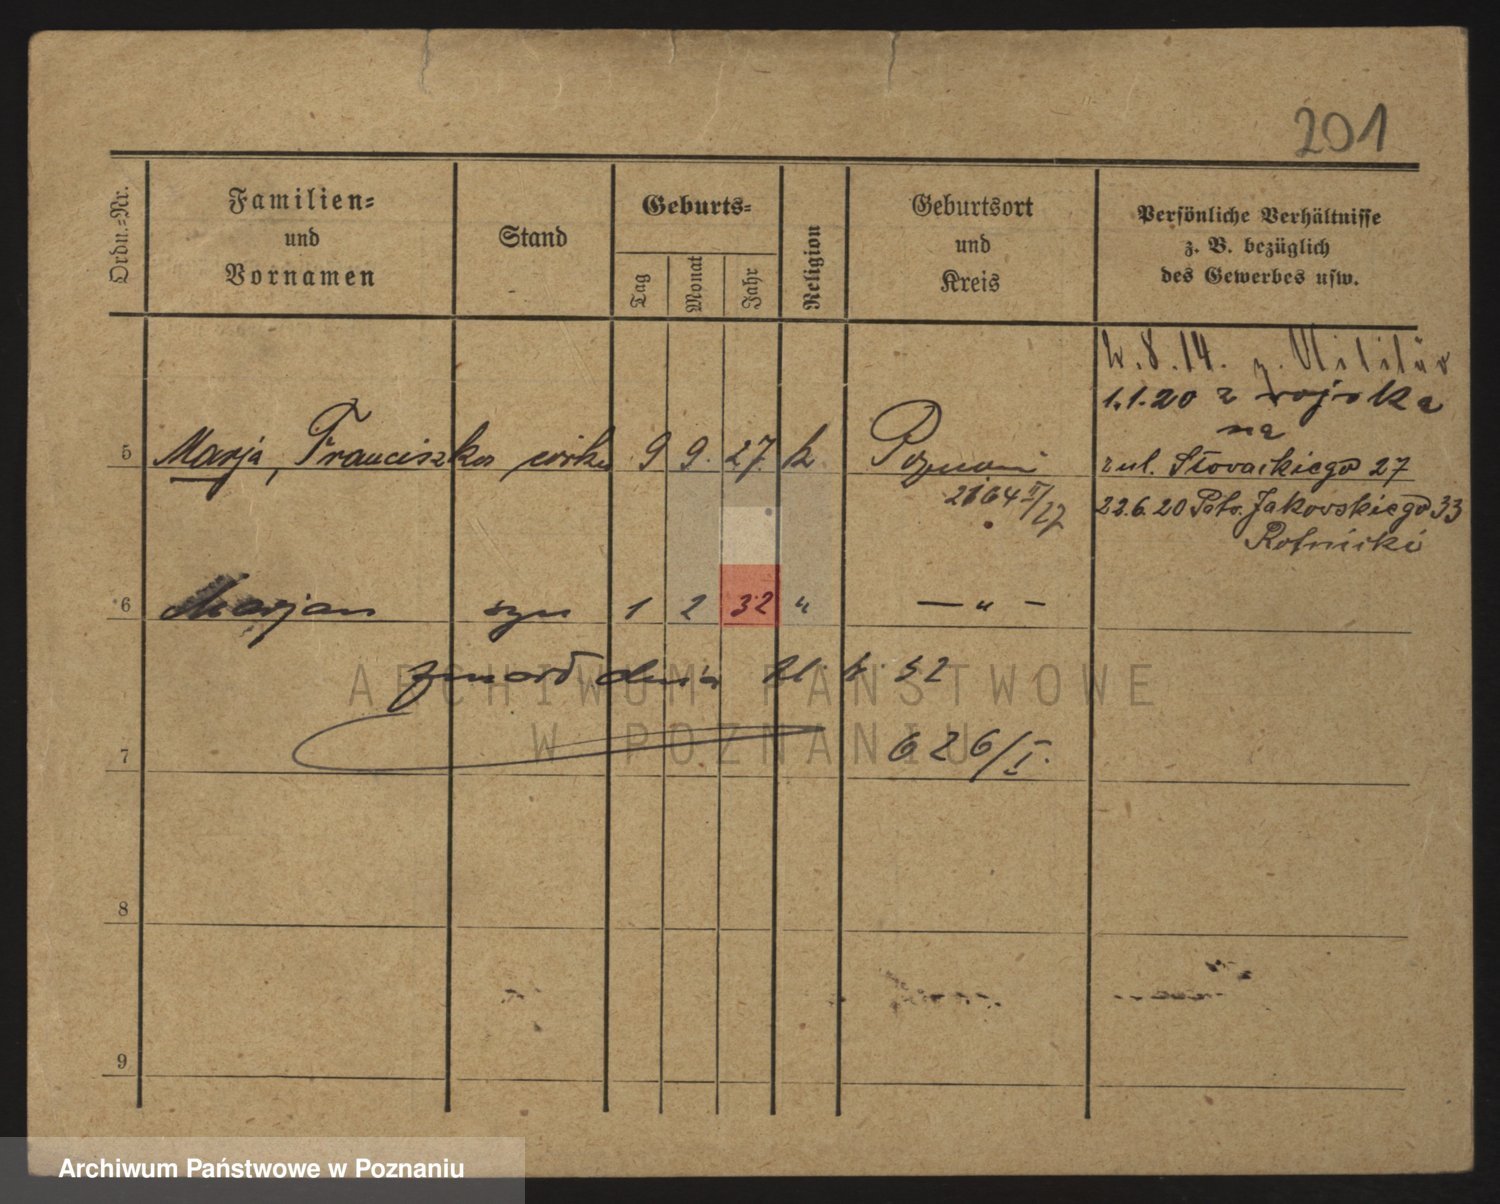 201
Ordn.-Nr.
Familien- und Vornamen
Stand
Geburts-
Tag
Monat
Jahr
Religion
Geburtsort und Kreis
Persönliche Verhältnisse z. B. bezüglich des Gewerbes usw.
8.14. z. Militär
1.1.20 z wojska
na
5 Marja, Franciszka córka 9 9. 27. k Poznań z ul. Słowackiego 27
2164 II/27 22.6.20 Jakowskiego 33
Rotnicki
6 Marjan syn 1 2 32 " — " —
zmarł dnia 52
7 626/I.
8
9
ARCHIWUM PAŃSTWOWE
W POZNANIU
Archiwum Państwowe w Poznaniu